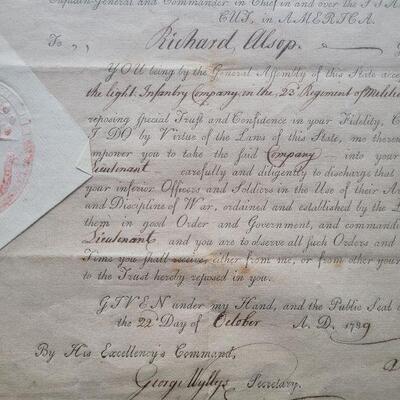 Captain-General and Commander in Chief in and over the STA
CUT, in AMERICA.
To ,, Richard Alsop.
YOU being by the General Assembly of this State acce
the light Infantry Company in the 23d Regiment of Militia
reposing special Trust and Confidence in your Fidelity, C
I DO by Virtue of the Laws of this State, me thereu
impower you to take the said Company — into your
Lieutenant carefully and diligently to discharge that
your inferior Officers and Soldiers in the Use of their Ar
and Discipline of War, ordained and established by the L
them in good Order and Government, and command
Lieutenant and you are to observe all such Orders and
Time you shall receive, either from me, or from other your
to the Trust hereby reposed in you.
GIVEN under my Hand, and the Public Seal o
the 22d Day of October A. D. 1789
By His Excellency's Command,
George Wyllys Secretary.